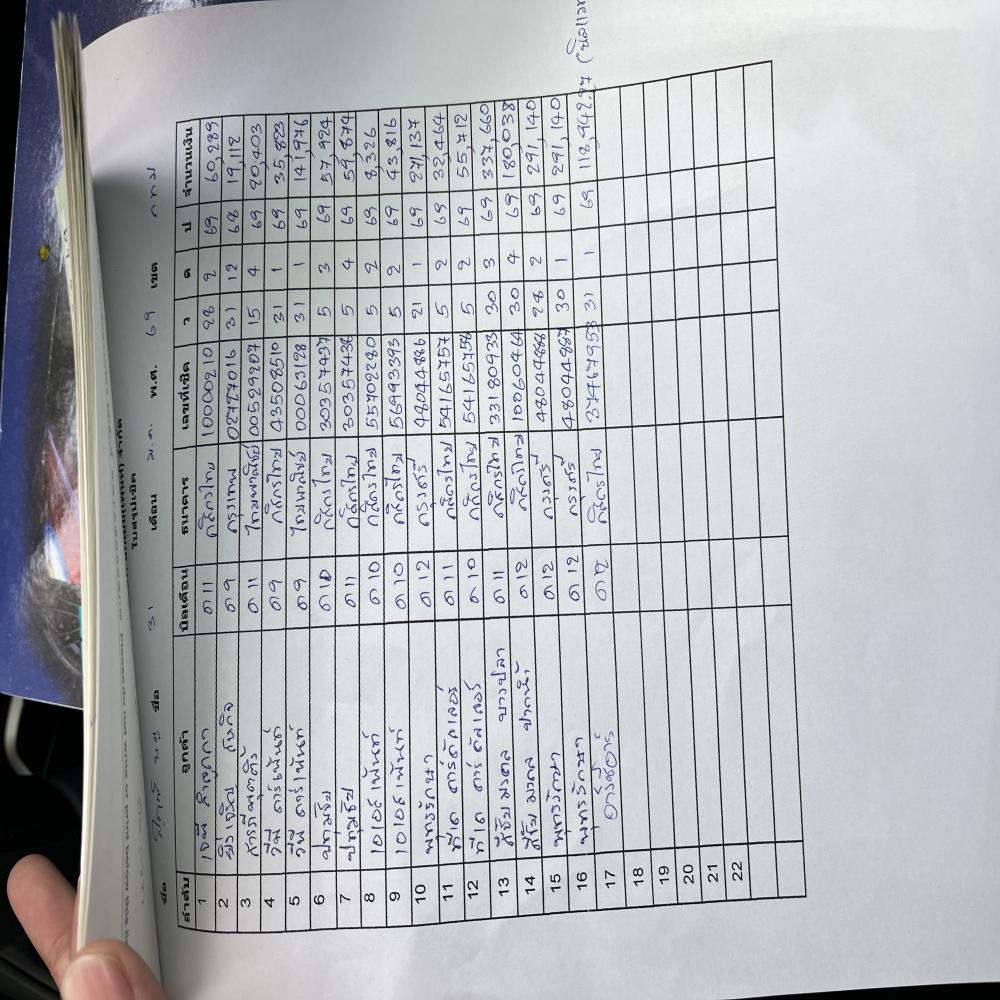 ใบสรุปเช็ค
ชื่อ ชื่อ 31 เดือน ม.ค. พ.ศ. 69 เขต กทม
ลำดับ ลูกค้า บิลเดือน ธนาคาร เลขที่เช็ค ว ด ป จำนวนเงิน
1 เจพี ลำลูกกา ด 11 กสิกรไทย 10000210 28 2 69 60,289
2 ด 9 กรุงเทพ 02727016 31 12 68 19,112
3 ด 11 ไทยพาณิชย์ 00529207 15 4 69 20,403
4 วีพี คาร์เพ้นท์ ด 9 กสิกรไทย 43508510 31 1 69 35,823
5 วีพี คาร์เพ้นท์ ด 9 ไทยพาณิชย์ 00063128 31 1 69 141,976
6 ปทุมชัย ด 10 กสิกรไทย 30357437 5 3 69 57,924
7 ปทุมชัย ด 11 กสิกรไทย 30357438 5 4 69 59,874
8 ด 10 กสิกรไทย 55702280 5 2 69 8,326
9 ด 10 กสิกรไทย 56993393 5 2 69 43,816
10 พุทธรักษา ด 12 กรุงศรี 48044886 21 1 69 271,137
11 ทีเค คาร์คัลเลอร์ ด 11 กสิกรไทย 54165757 5 2 69 32,464
12 ทีเค คาร์คัลเลอร์ ด 10 กสิกรไทย 54165756 5 2 69 55,712
13 ศรีชัยมงคล บางปลา ด 11 กสิกรไทย 33180933 30 3 69 337,660
14 ศรีชัยมงคล ปากน้ำ ด 12 กสิกรไทย 10060464 30 4 69 180,038
15 พุทธรักษา ด 12 กรุงศรี 48044888 28 2 69 291,140
16 พุทธรักษา ด 12 กรุงศรี 48044887 30 1 69 291,140
17 ด 12 กสิกรไทย 37467953 31 1 69 118,942.27
18
19
20
21
22